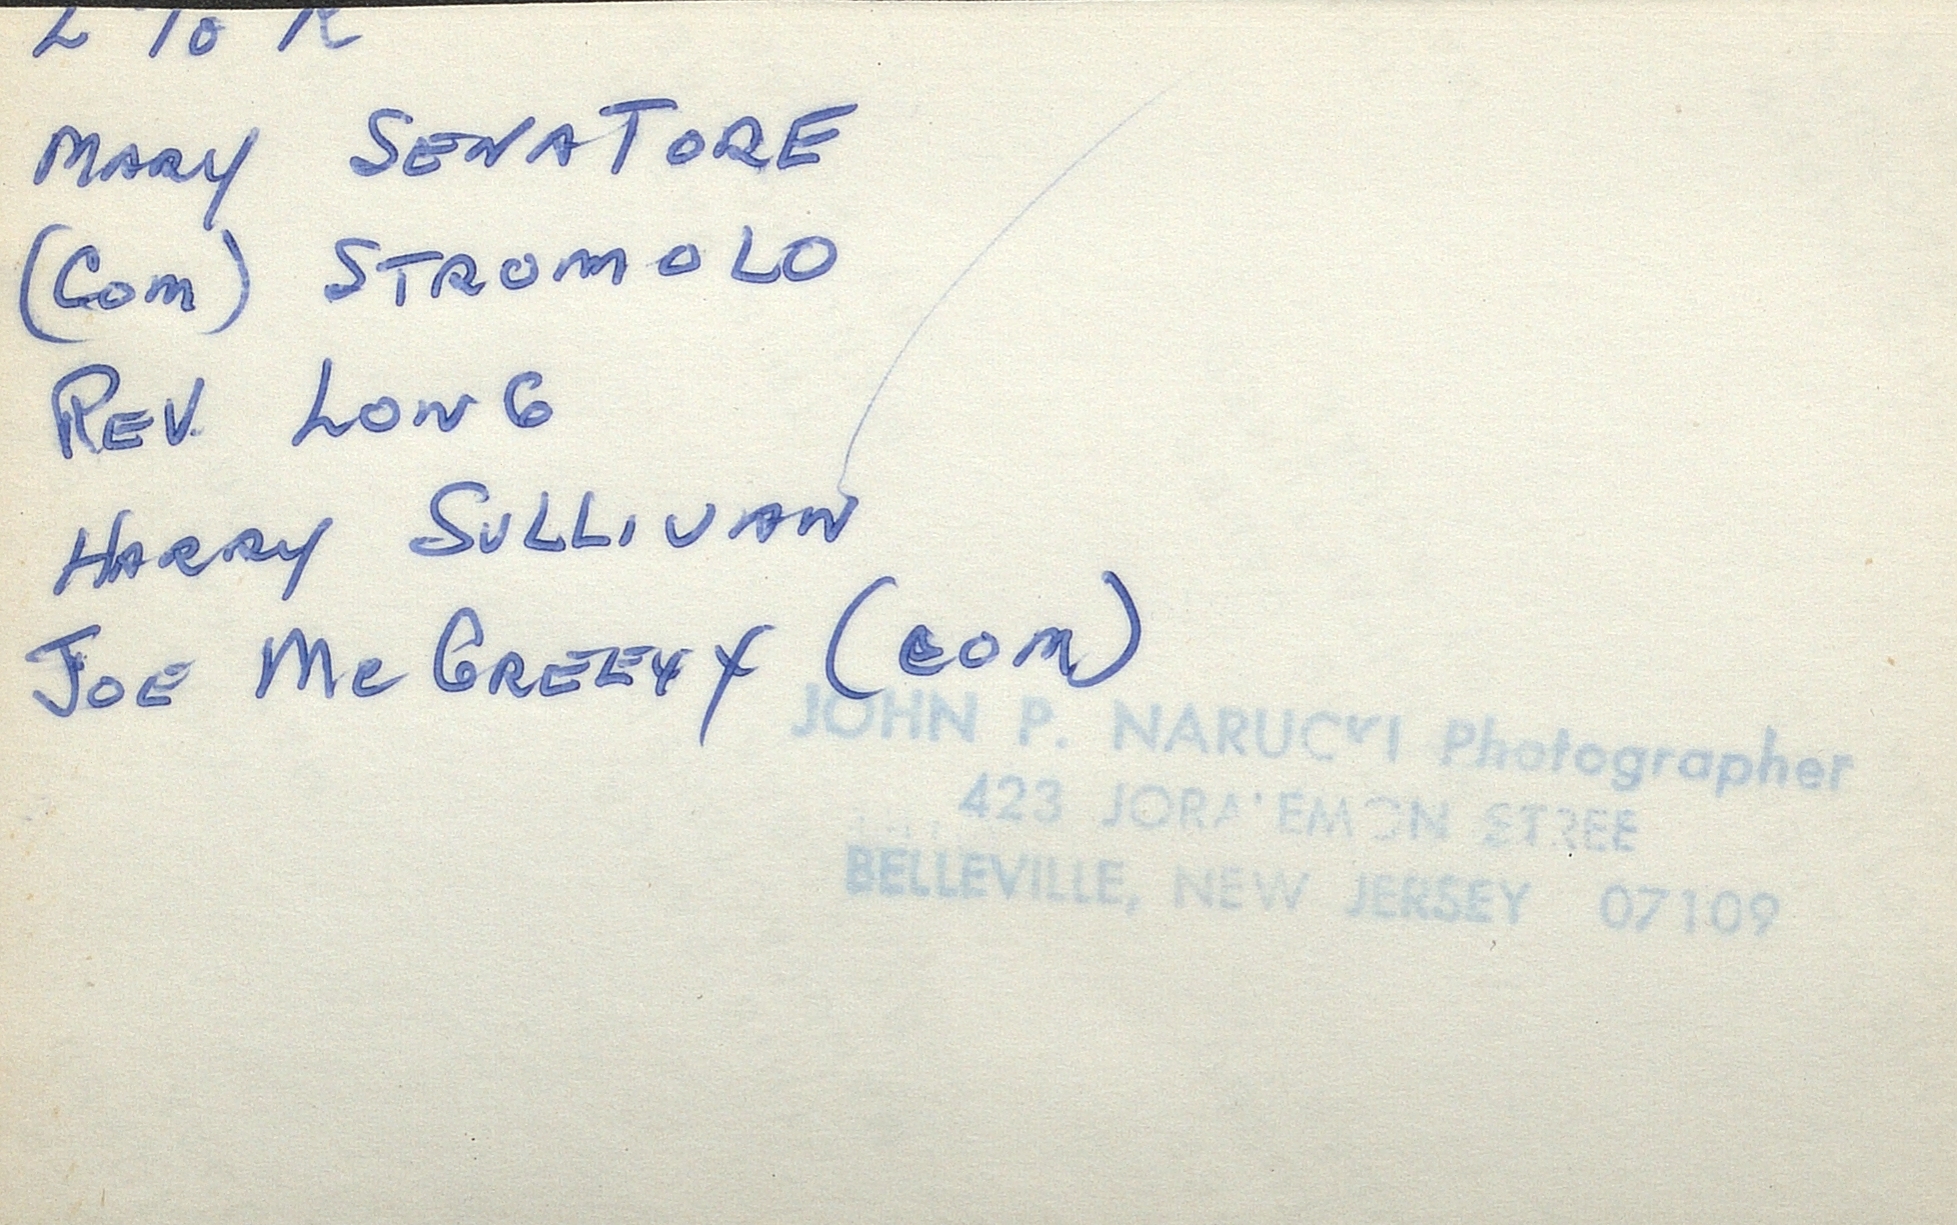 L To R
MARY SENATORE
(Com) STROMOLO
REV. LONG
HARRY SULLIVAN
JOE McGREEVY (com)
JOHN P. NARUCKI Photographer
423 JORALEMON STREE
BELLEVILLE, NEW JERSEY 07109